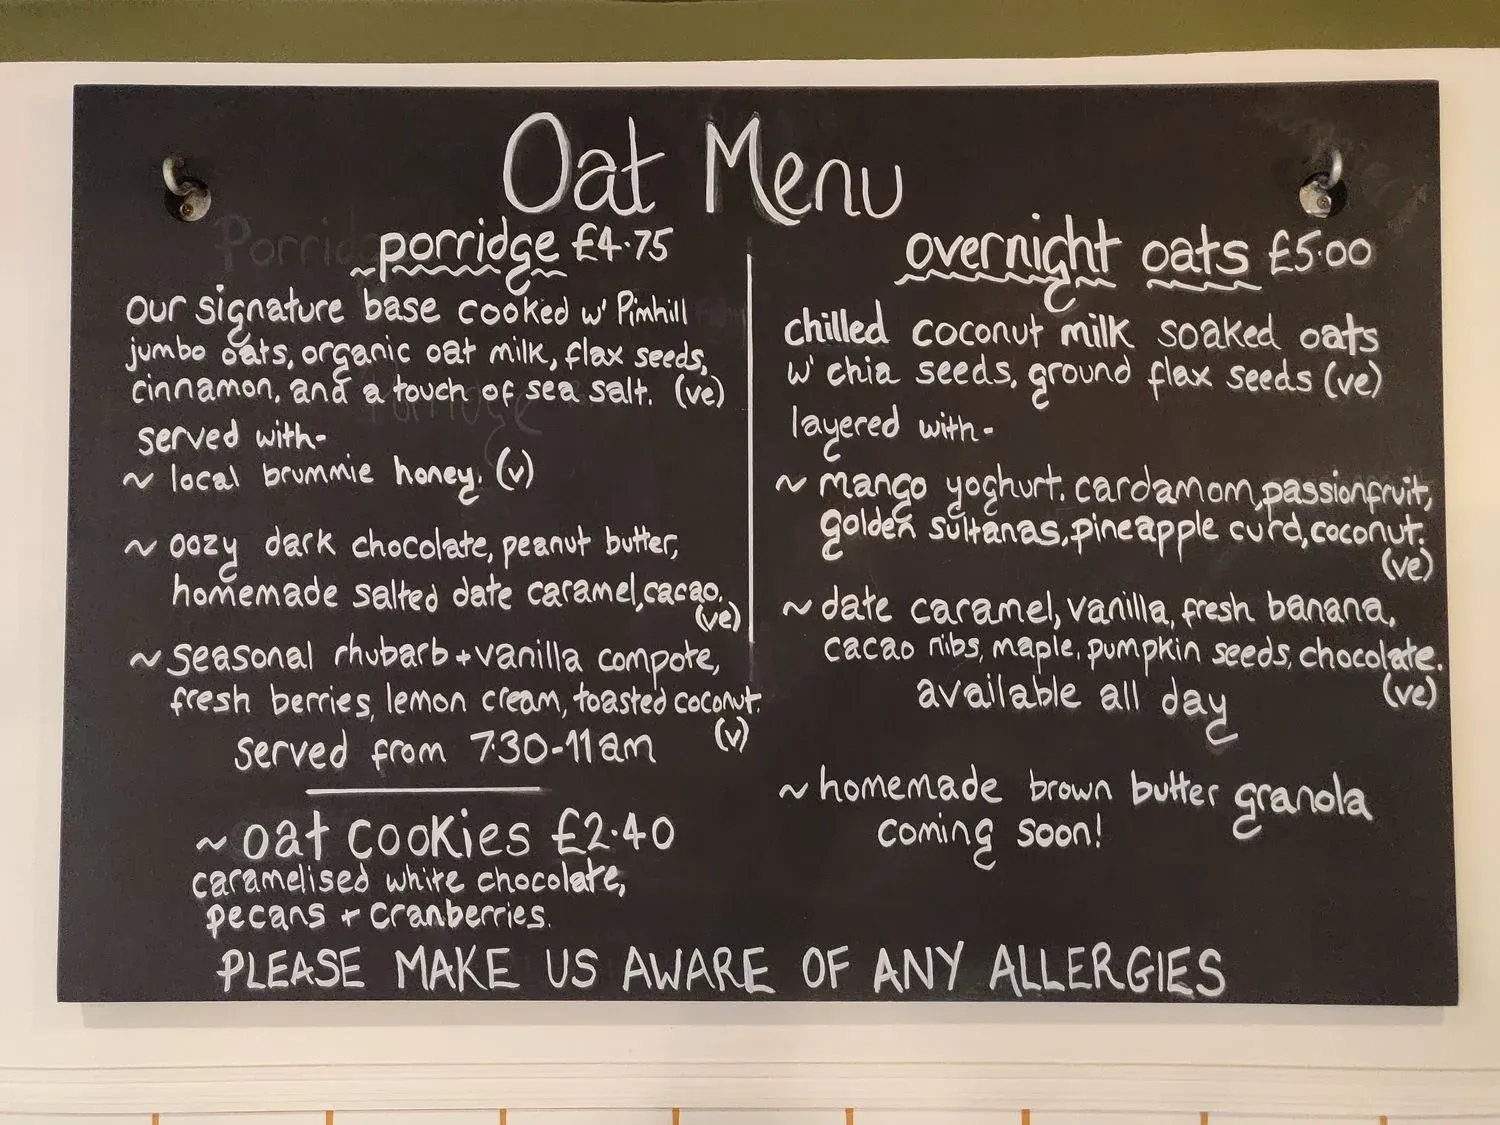 Oat Menu
porridge £4.75
our signature base cooked w' Pimhill
jumbo oats, organic oat milk, flax seeds,
cinnamon, and a touch of sea salt. (ve)
served with-
~ local brummie honey. (v)
~ oozy dark chocolate, peanut butter,
homemade salted date caramel, cacao.
(ve)
~ seasonal rhubarb + vanilla compote,
fresh berries, lemon cream, toasted coconut.
(v)
served from 7.30-11am
~ oat cookies £2.40
caramelised white chocolate,
pecans + cranberries.
overnight oats £5.00
chilled coconut milk soaked oats
w' chia seeds, ground flax seeds (ve)
layered with-
~ mango yoghurt. cardamom, passionfruit,
golden sultanas, pineapple curd, coconut.
(ve)
~ date caramel, vanilla, fresh banana,
cacao nibs, maple, pumpkin seeds, chocolate.
(ve)
available all day
~ homemade brown butter granola
coming soon!
PLEASE MAKE US AWARE OF ANY ALLERGIES